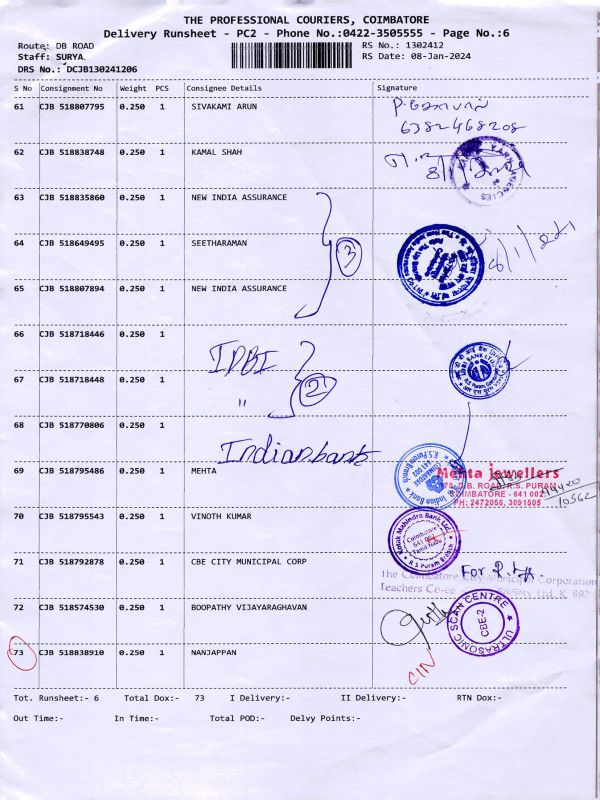 THE PROFESSIONAL COURIERS, COIMBATORE
Delivery Runsheet - PC2 - Phone No.:0422-3505555 - Page No.:6
Route: DB ROAD
RS No.: 1302412
Staff: SURYA
RS Date: 08-Jan-2024
DRS No.: DCJB130241206
S No Consignment No Weight PCS Consignee Details Signature
61 CJB 518807795 0.250 1 SIVAKAMI ARUN
6382468208
62 CJB 518838748 0.250 1 KAMAL SHAH
63 CJB 518835860 0.250 1 NEW INDIA ASSURANCE
64 CJB 518649495 0.250 1 SEETHARAMAN
3
65 CJB 518807894 0.250 1 NEW INDIA ASSURANCE
66 CJB 518718446 0.250 1
IDBI
67 CJB 518718448 0.250 1
" 2
68 CJB 518770806 0.250 1
Indian bank
69 CJB 518795486 0.250 1 MEHTA
Mehta Jewellers
D.B. ROAD, R.S. PURAM
COIMBATORE - 641 002
PH: 2472056, 3091505
Indian Bank
R.S Puram Branch
70 CJB 518795543 0.250 1 VINOTH KUMAR
Kotak Mahindra Bank Ltd.
Coimbatore
Tamil Nadu
R S Puram Branch
71 CJB 518792878 0.250 1 CBE CITY MUNICIPAL CORP
For
The Coimbatore City Municipal Corporation
Teachers Co-op
72 CJB 518574530 0.250 1 BOOPATHY VIJAYARAGHAVAN
ULTRASONIC SCAN CENTRE
CBE-2
73 CJB 518838910 0.250 1 NANJAPPAN
CIN
Tot. Runsheet:- 6 Total Dox:- 73 I Delivery:- II Delivery:- RTN Dox:-
Out Time:- In Time:- Total POD:- Delvy Points:-